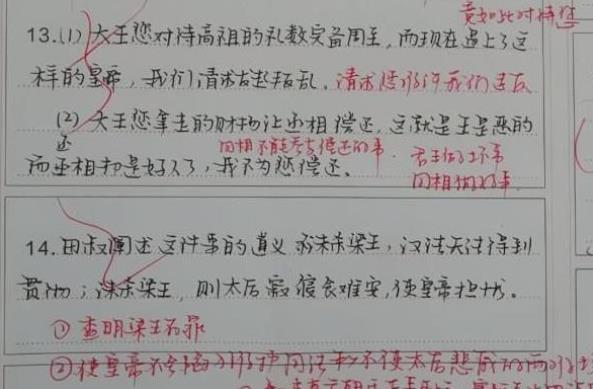 竟如此对待您
13.(1) 大王您对待高祖的礼数完备周全,而现在遇上了这
样的皇帝,我们请求发起叛乱。请求您允许我们造反
(2) 大王您拿走的财物让丞相偿还,这就是王是恶的
还 因相不能参与偿还的事. 君王做坏事
而丞相却是好人了,我不为您偿还。
因相做好事
14.田叔阐述这件事的道义 不诛杀梁王,汉法无法得到
贯彻;诛杀梁王,则太后寝食难安,使皇帝担忧。
① 查明梁王有罪
②使皇帝不